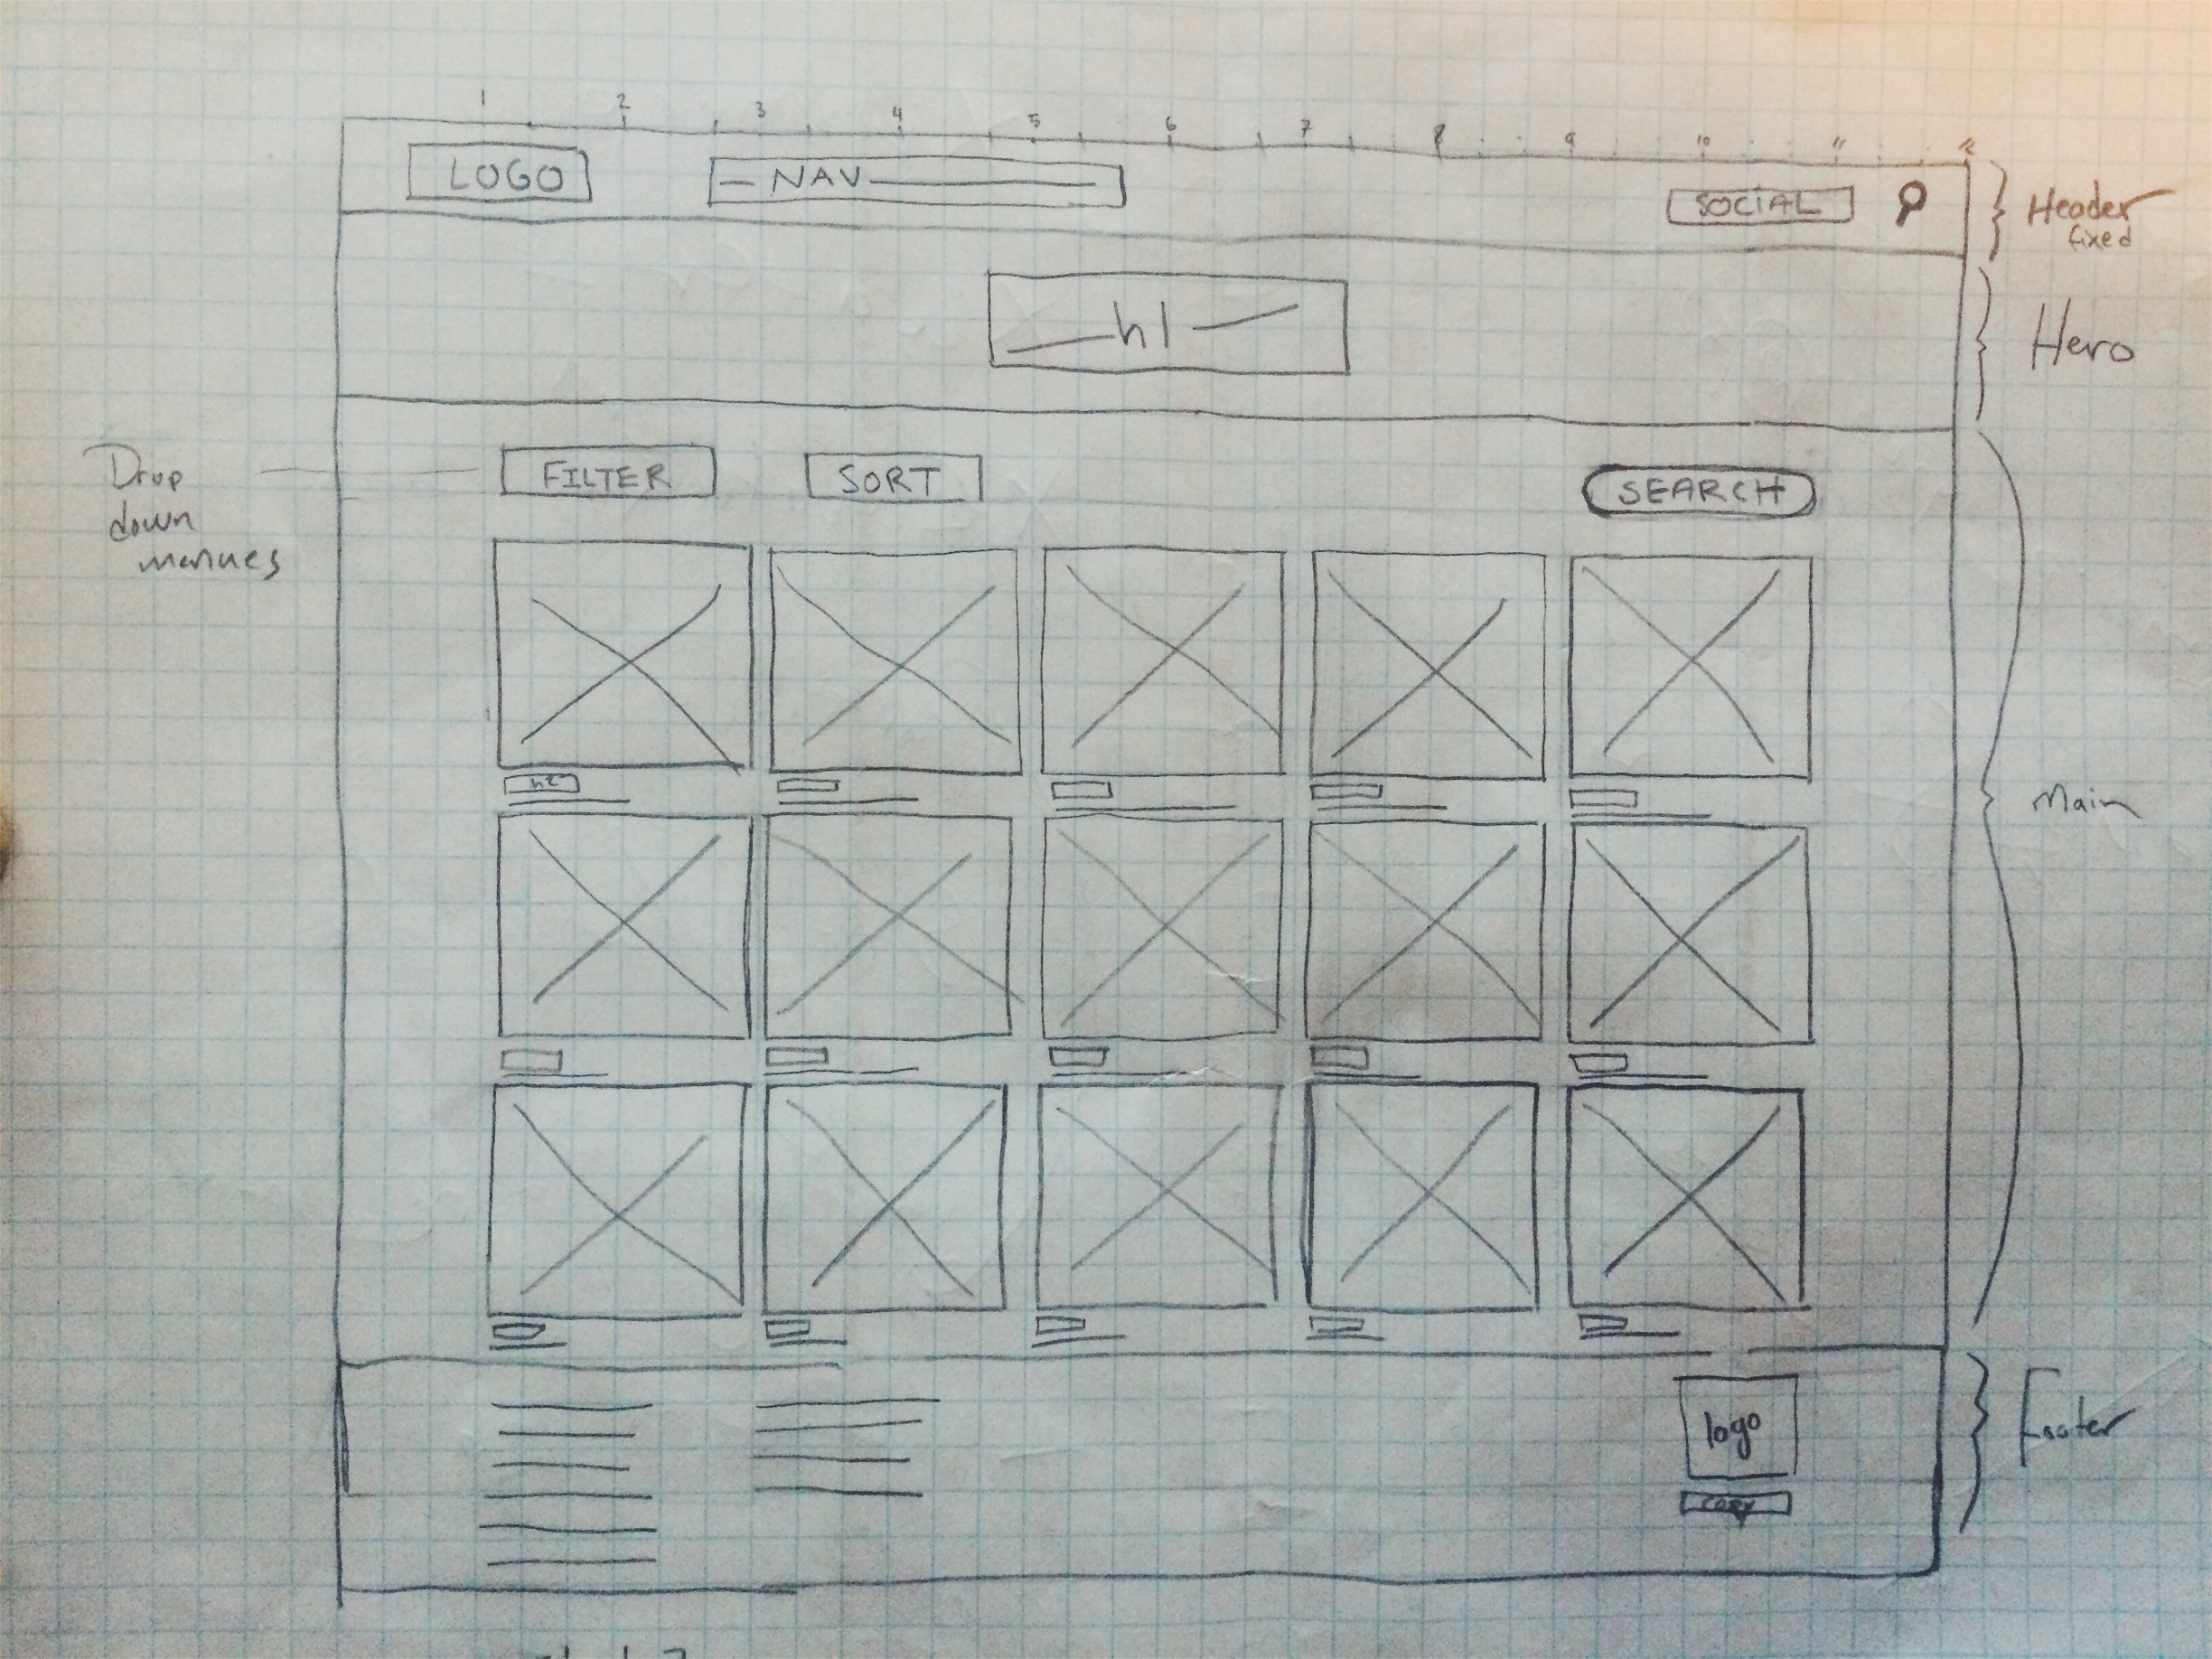 1 2 3 4 5 6 7 8 9 10 11 12
LOGO
NAV
SOCIAL
Header
fixed
h1
Hero
Drop
down
menues
FILTER
SORT
SEARCH
h2
Main
logo
copy
Footer